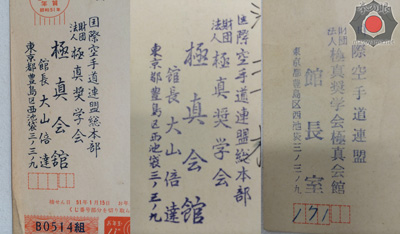 国際空手道連盟総本部
財団法人 極真奨学会
極真会館
館長 大山倍達
東京都豊島区西池袋三ノ三ノ九
B0514組
国際空手道連盟総本部
財団法人 極真奨学会
極真会館
館長 大山倍達
東京都豊島区西池袋三ノ三ノ九
際空手道連盟
財団法人 極真奨学会極真会館
館長室
東京都豊島区西池袋三ノ三ノ九
171